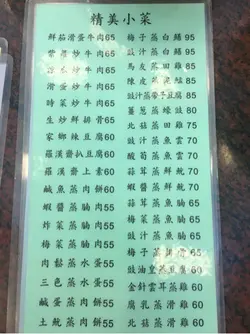 精美小菜
鮮茄滑蛋牛肉65
紫蘿炒牛肉65
涼瓜炒牛肉65
滑蛋炒牛肉65
時菜炒牛肉65
生炒鮮排骨65
家鄉辣豆腐60
羅漢齋扒豆腐60
羅漢齋上素60
鹹魚蒸肉餅60
蝦醬蒸腩肉60
炸菜蒸腩肉55
梅菜蒸腩肉55
肉鬆蒸水蛋50
三色蒸水蛋60
鹹蛋蒸肉餅60
土魷蒸肉餅60
梅子蒸白鱔95
豉汁蒸白鱔95
馬皮蒸田雞85
陳皮蒸田雞85
豉汁蒸帶子豆腐85
薑蔥蒸蠔豉80
北菇蒸田雞75
豉汁蒸魚雲70
酸筍蒸魚雲70
蒜茸蒸鮮魷70
蝦醬蒸鮮魷70
蒜茸蒸腩肉65
梅菜蒸魚腩65
梅子蒸排骨65
豉油皇蒸豆腐60
金針雲耳蒸雞60
腐乳蒸滑雞60
北菇蒸滑雞60